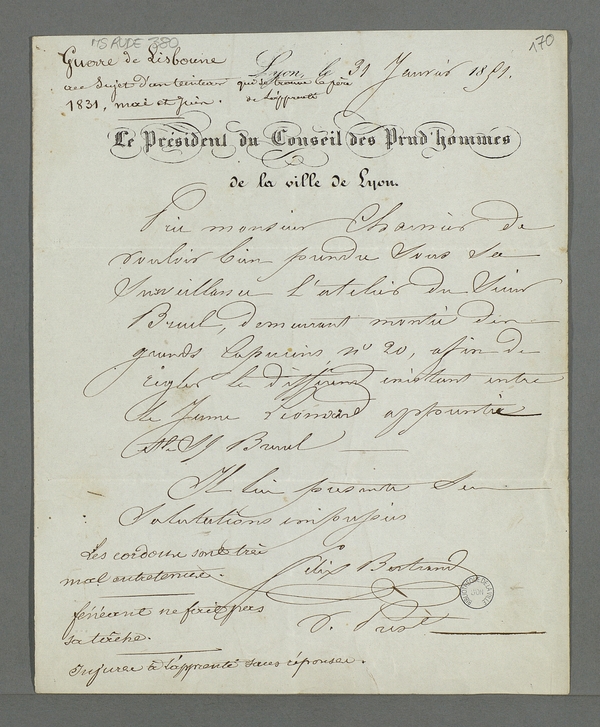 MS RUDE 380
170
Guerre de Lisbonne
au Sujet d'un
1831, mai et Juin.
Lyon, le 31 Janvier 18
que se trouve le père
de l'apprenti
Le Président du Conseil des Prud'hommes
de la ville de Lyon.
Prie monsieur Charnier de
vouloir bien prendre sous sa
Surveillance l'atelier du Sieur
Bruel, demeurant montée des
grands Capucins, n° 20, afin de
règler le différend existant entre
le Jeune Léonard apprenti
et le Sr Bruel
Il lui présente Ses
Salutations
Les cordons sont très
mal entretenus.
Félix Bertrand
fénéant ne fait pas
sa tâche.
v. Prést
injures à l'apprenti sans réponses.